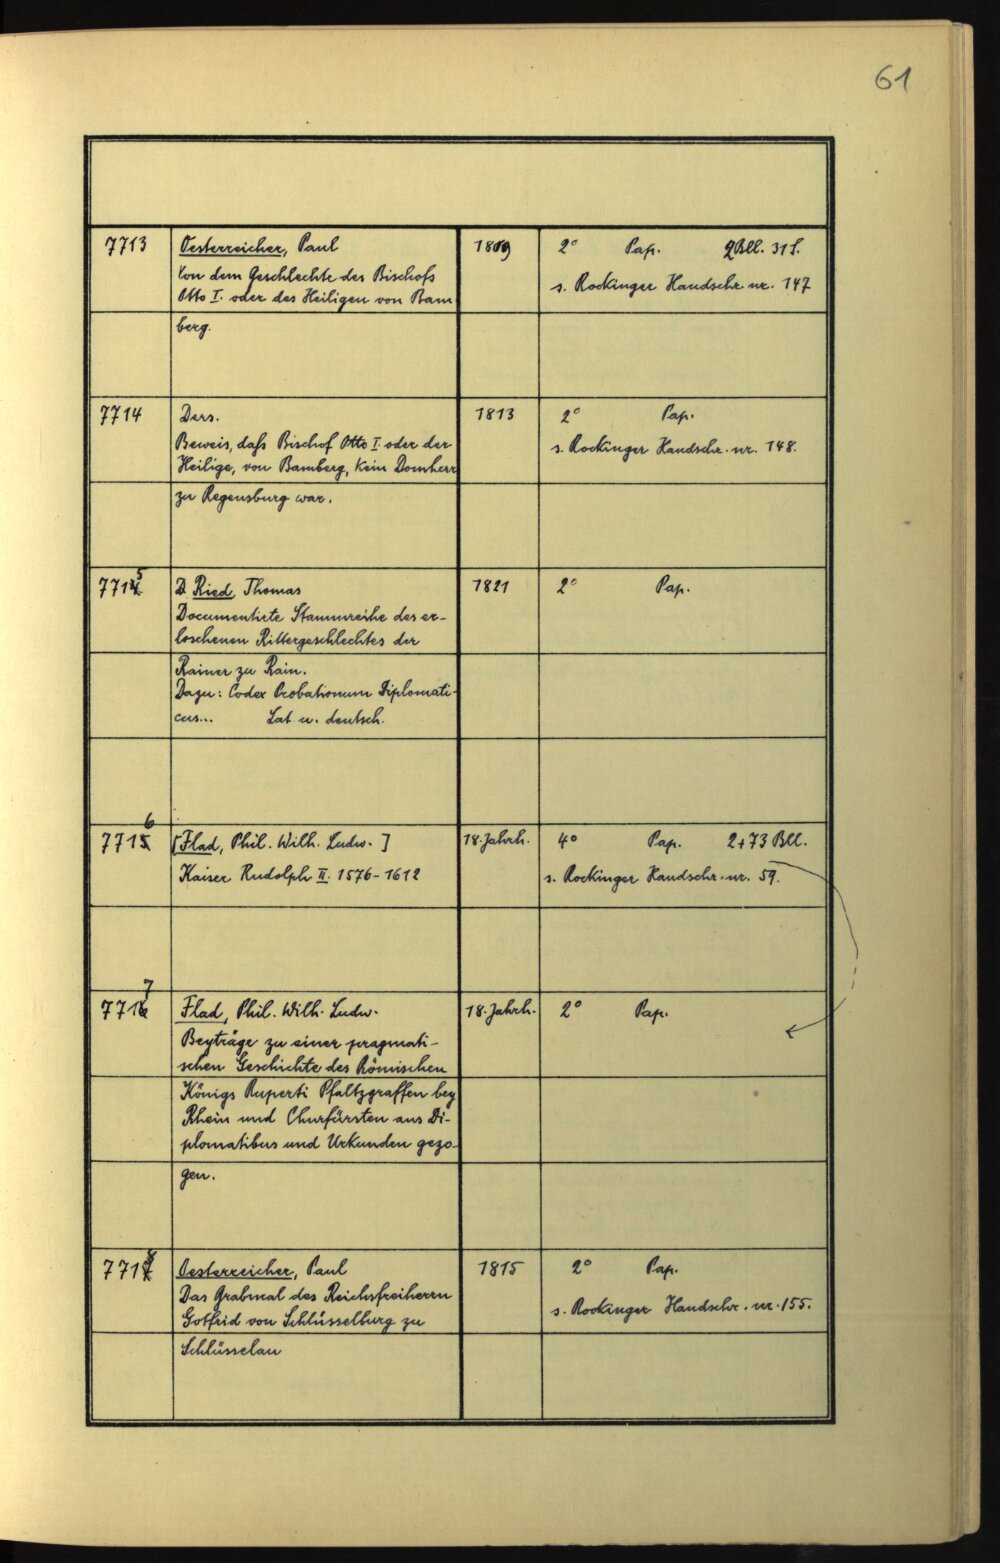 61
7713 Oesterreicher, Paul 1809 2° Pap. 2 Bll. 31 S.
Von dem Geschlechte des Bischofs
Otto I. oder des Heiligen von Bam
s. Rockinger Handschr. nr. 147
berg.
7714 Ders. 1813 2° Pap.
Beweis, daß Bischof Otto I. oder der
Heilige, von Bamberg, kein Domherr
s. Rockinger Handschr. nr. 148.
zu Regensburg war.
7715 D. Ried, Thomas 1821 2° Pap.
Documentirte Stammreihe des er-
loschenen Rittergeschlechtes der
Rainer zu Rain.
Dazu: Codex Probationum Diplomati-
cus... Lat. u. deutsch.
7716 [Flad, Phil. Wilh. Ludw.] 18. Jahrh. 4° Pap. 2+73 Bll.
Kaiser Rudolph II. 1576-1612 s. Rockinger Handschr. nr. 59.
7717 Flad, Phil. Wilh. Ludw. 18. Jahrh. 2° Pap.
Beyträge zu einer pragmati-
schen Geschichte des Römischen
Königs Ruperti Pfaltzgraffen bey
Rhein und Churfürsten aus Di-
plomatibus und Urkunden gezo-
gen.
7718 Oesterreicher, Paul 1815 2° Pap.
Das Grabmal des Reichsfreiherrn
Gotfrid von Schlüsselburg zu
s. Rockinger Handschr. nr. 155.
Schlüsselau